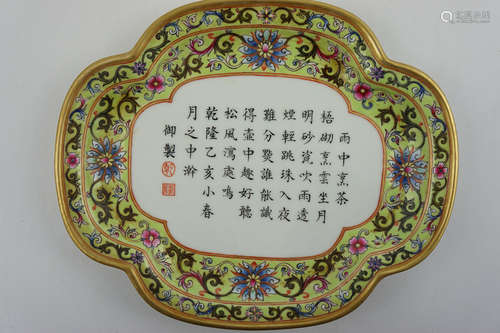 雨中烹茶
梧砌烹雲坐月
明砂瓷吹雨透
煙輕跳珠入夜
難分點誰能識
得壺中趣好聽
松風瀉處鳴
乾隆乙亥小春
月之中澣
御製